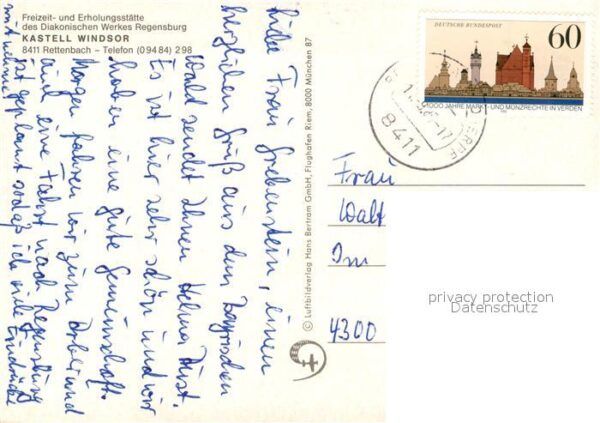 Freizeit- und Erholungsstätte
des Diakonischen Werkes Regensburg
KASTELL WINDSOR
8411 Rettenbach – Telefon (0 94 84) 2 98
Liebe Frau Grebenstein, einen
herzlichen Gruß aus dem Bayrischen
Wald sendet Ihnen Helma
Es ist hier sehr schön und wir
haben eine gute Gemeinschaft.
Morgen fahren wir zum und
auch eine Fahrt nach Regensburg
ist geplant sodaß ich viele Eindrücke
mitnehme
© Luftbildverlag Hans Bertram GmbH, Flughafen Riem, 8000 München 87
DEUTSCHE BUNDESPOST
60
1000 JAHRE MARKT- UND MÜNZRECHTE IN VERDEN
8411
Frau
Walt
Im
4300
privacy protection
Datenschutz